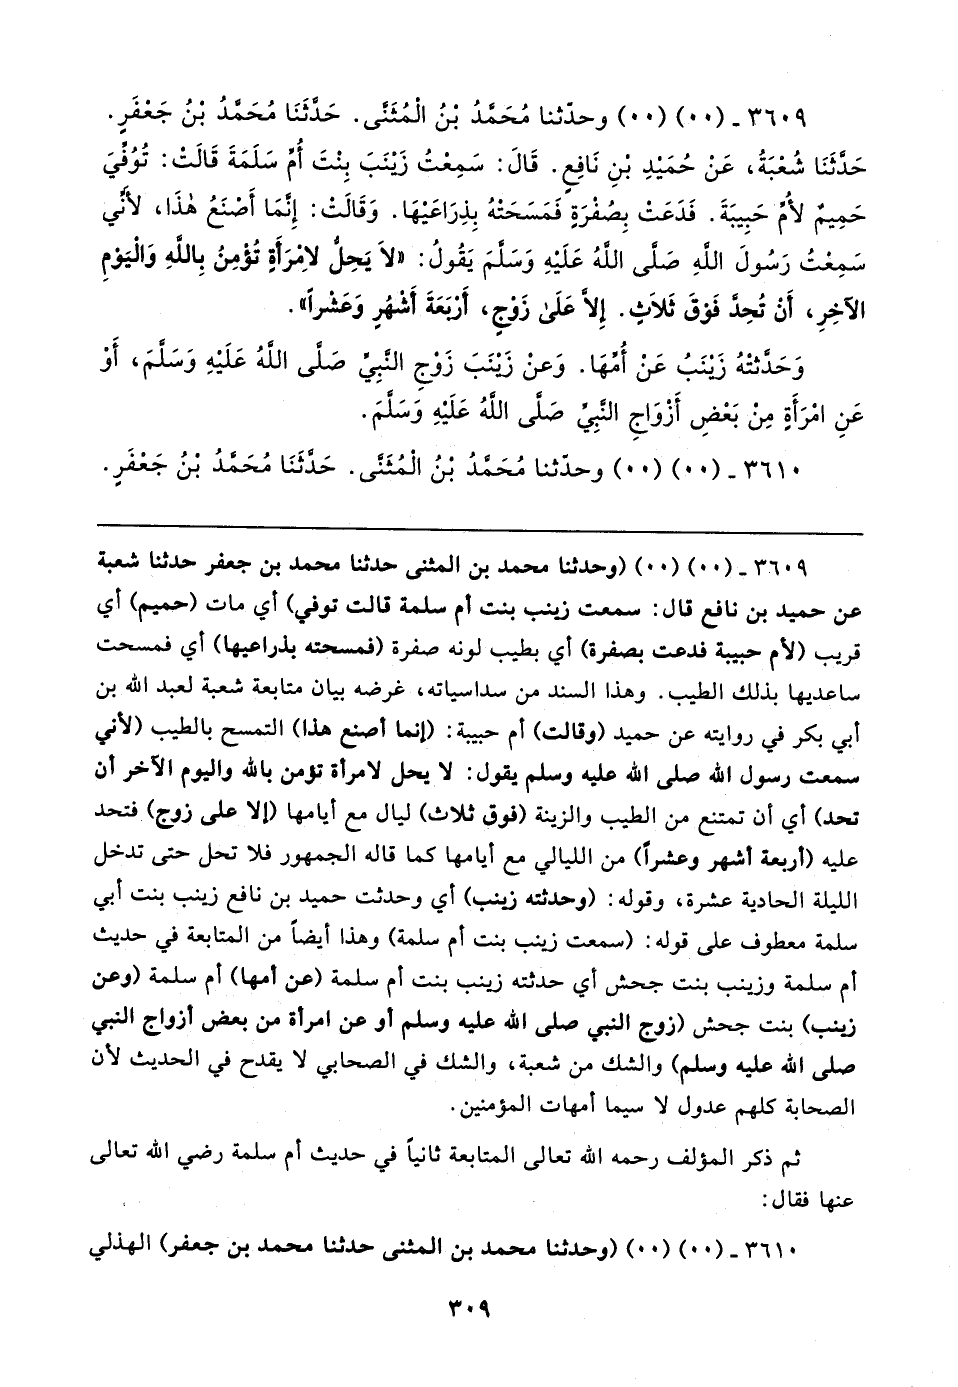 ٣٦٠٩ ـ (٠٠) (٠٠) وحدّثنا مُحَمَّدُ بْنُ الْمُثَنَّى. حَدَّثَنَا مُحَمَّدُ بْنُ جَعْفَرٍ.
حَدَّثَنَا شُعْبَةُ، عَنْ حُمَيْدِ بْنِ نَافِعٍ. قَالَ: سَمِعْتُ زَيْنَبَ بِنْتَ أُمِّ سَلَمَةَ قَالَتْ: تُوُفِّيَ
حَمِيمٌ لأُمِّ حَبِيبَةَ. فَدَعَتْ بِصُفْرَةٍ فَمَسَحَتْهُ بِذِرَاعَيْهَا. وَقَالَتْ: إِنَّمَا أَصْنَعُ هٰذَا، لأَنِّي
سَمِعْتُ رَسُولَ اللَّهِ صَلَّى اللَّهُ عَلَيْهِ وَسَلَّمَ يَقُولُ: «لاَ يَحِلُّ لاِمْرَأَةٍ تُؤْمِنُ بِاللَّهِ وَالْيَوْمِ
الآخِرِ، أَنْ تُحِدَّ فَوْقَ ثَلاَثٍ. إِلاَّ عَلَىٰ زَوْجٍ، أَرْبَعَةَ أَشْهُرٍ وَعَشْراً».
وَحَدَّثَتْهُ زَيْنَبُ عَنْ أُمِّهَا. وَعنْ زَيْنَبَ زَوْجِ النَّبِيِّ صَلَّى اللَّهُ عَلَيْهِ وَسَلَّمَ، أَوْ
عَنِ امْرَأَةٍ مِنْ بَعْضِ أَزْوَاجِ النَّبِيِّ صَلَّى اللَّهُ عَلَيْهِ وَسَلَّمَ.
٣٦١٠ ـ (٠٠) (٠٠) وحدّثنا مُحَمَّدُ بْنُ الْمُثَنَّى. حَدَّثَنَا مُحَمَّدُ بْنُ جَعْفَرٍ.
٣٦٠٩ ـ (٠٠) (٠٠) (وحدثنا محمد بن المثنى حدثنا محمد بن جعفر حدثنا شعبة
عن حميد بن نافع قال: سمعت زينب بنت أم سلمة قالت توفي) أي مات (حميم) أي
قريب (لأم حبيبة فدعت بصفرة) أي بطيب لونه صفرة (فمسحته بذراعيها) أي فمسحت
ساعديها بذلك الطيب. وهذا السند من سداسياته، غرضه بيان متابعة شعبة لعبد الله بن
أبي بكر في روايته عن حميد (وقالت) أم حبيبة: (إنما أصنع هذا) التمسح بالطيب (لأني
سمعت رسول الله صلى الله عليه وسلم يقول: لا يحل لامرأة تؤمن بالله واليوم الآخر أن
تحد) أي أن تمتنع من الطيب والزينة (فوق ثلاث) ليال مع أيامها (إلا على زوج) فتحد
عليه (أربعة أشهر وعشراً) من الليالي مع أيامها كما قاله الجمهور فلا تحل حتى تدخل
الليلة الحادية عشرة، وقوله: (وحدثته زينب) أي وحدثت حميد بن نافع زينب بنت أبي
سلمة معطوف على قوله: (سمعت زينب بنت أم سلمة) وهذا أيضاً من المتابعة في حديث
أم سلمة وزينب بنت جحش أي حدثته زينب بنت أم سلمة (عن أمها) أم سلمة (وعن
زينب) بنت جحش (زوج النبي صلى الله عليه وسلم أو عن امرأة من بعض أزواج النبي
صلى الله عليه وسلم) والشك من شعبة، والشك في الصحابي لا يقدح في الحديث لأن
الصحابة كلهم عدول لا سيما أمهات المؤمنين.
ثم ذكر المؤلف رحمه الله تعالى المتابعة ثانياً في حديث أم سلمة رضي الله تعالى
عنها فقال:
٣٦١٠ ـ (٠٠) (٠٠) (وحدثنا محمد بن المثنى حدثنا محمد بن جعفر) الهذلي
٣٠٩